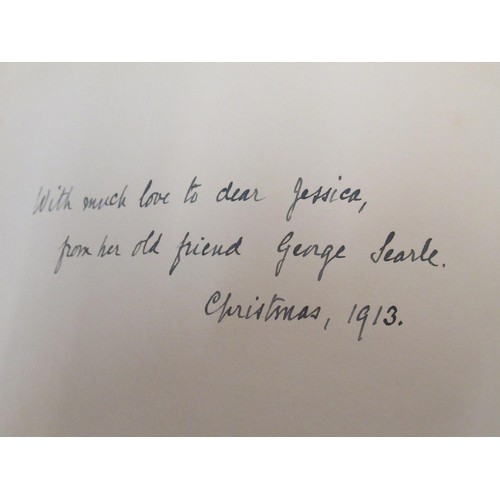 With much love to dear Jessica,
from her old friend George Searle.
Christmas, 1913.